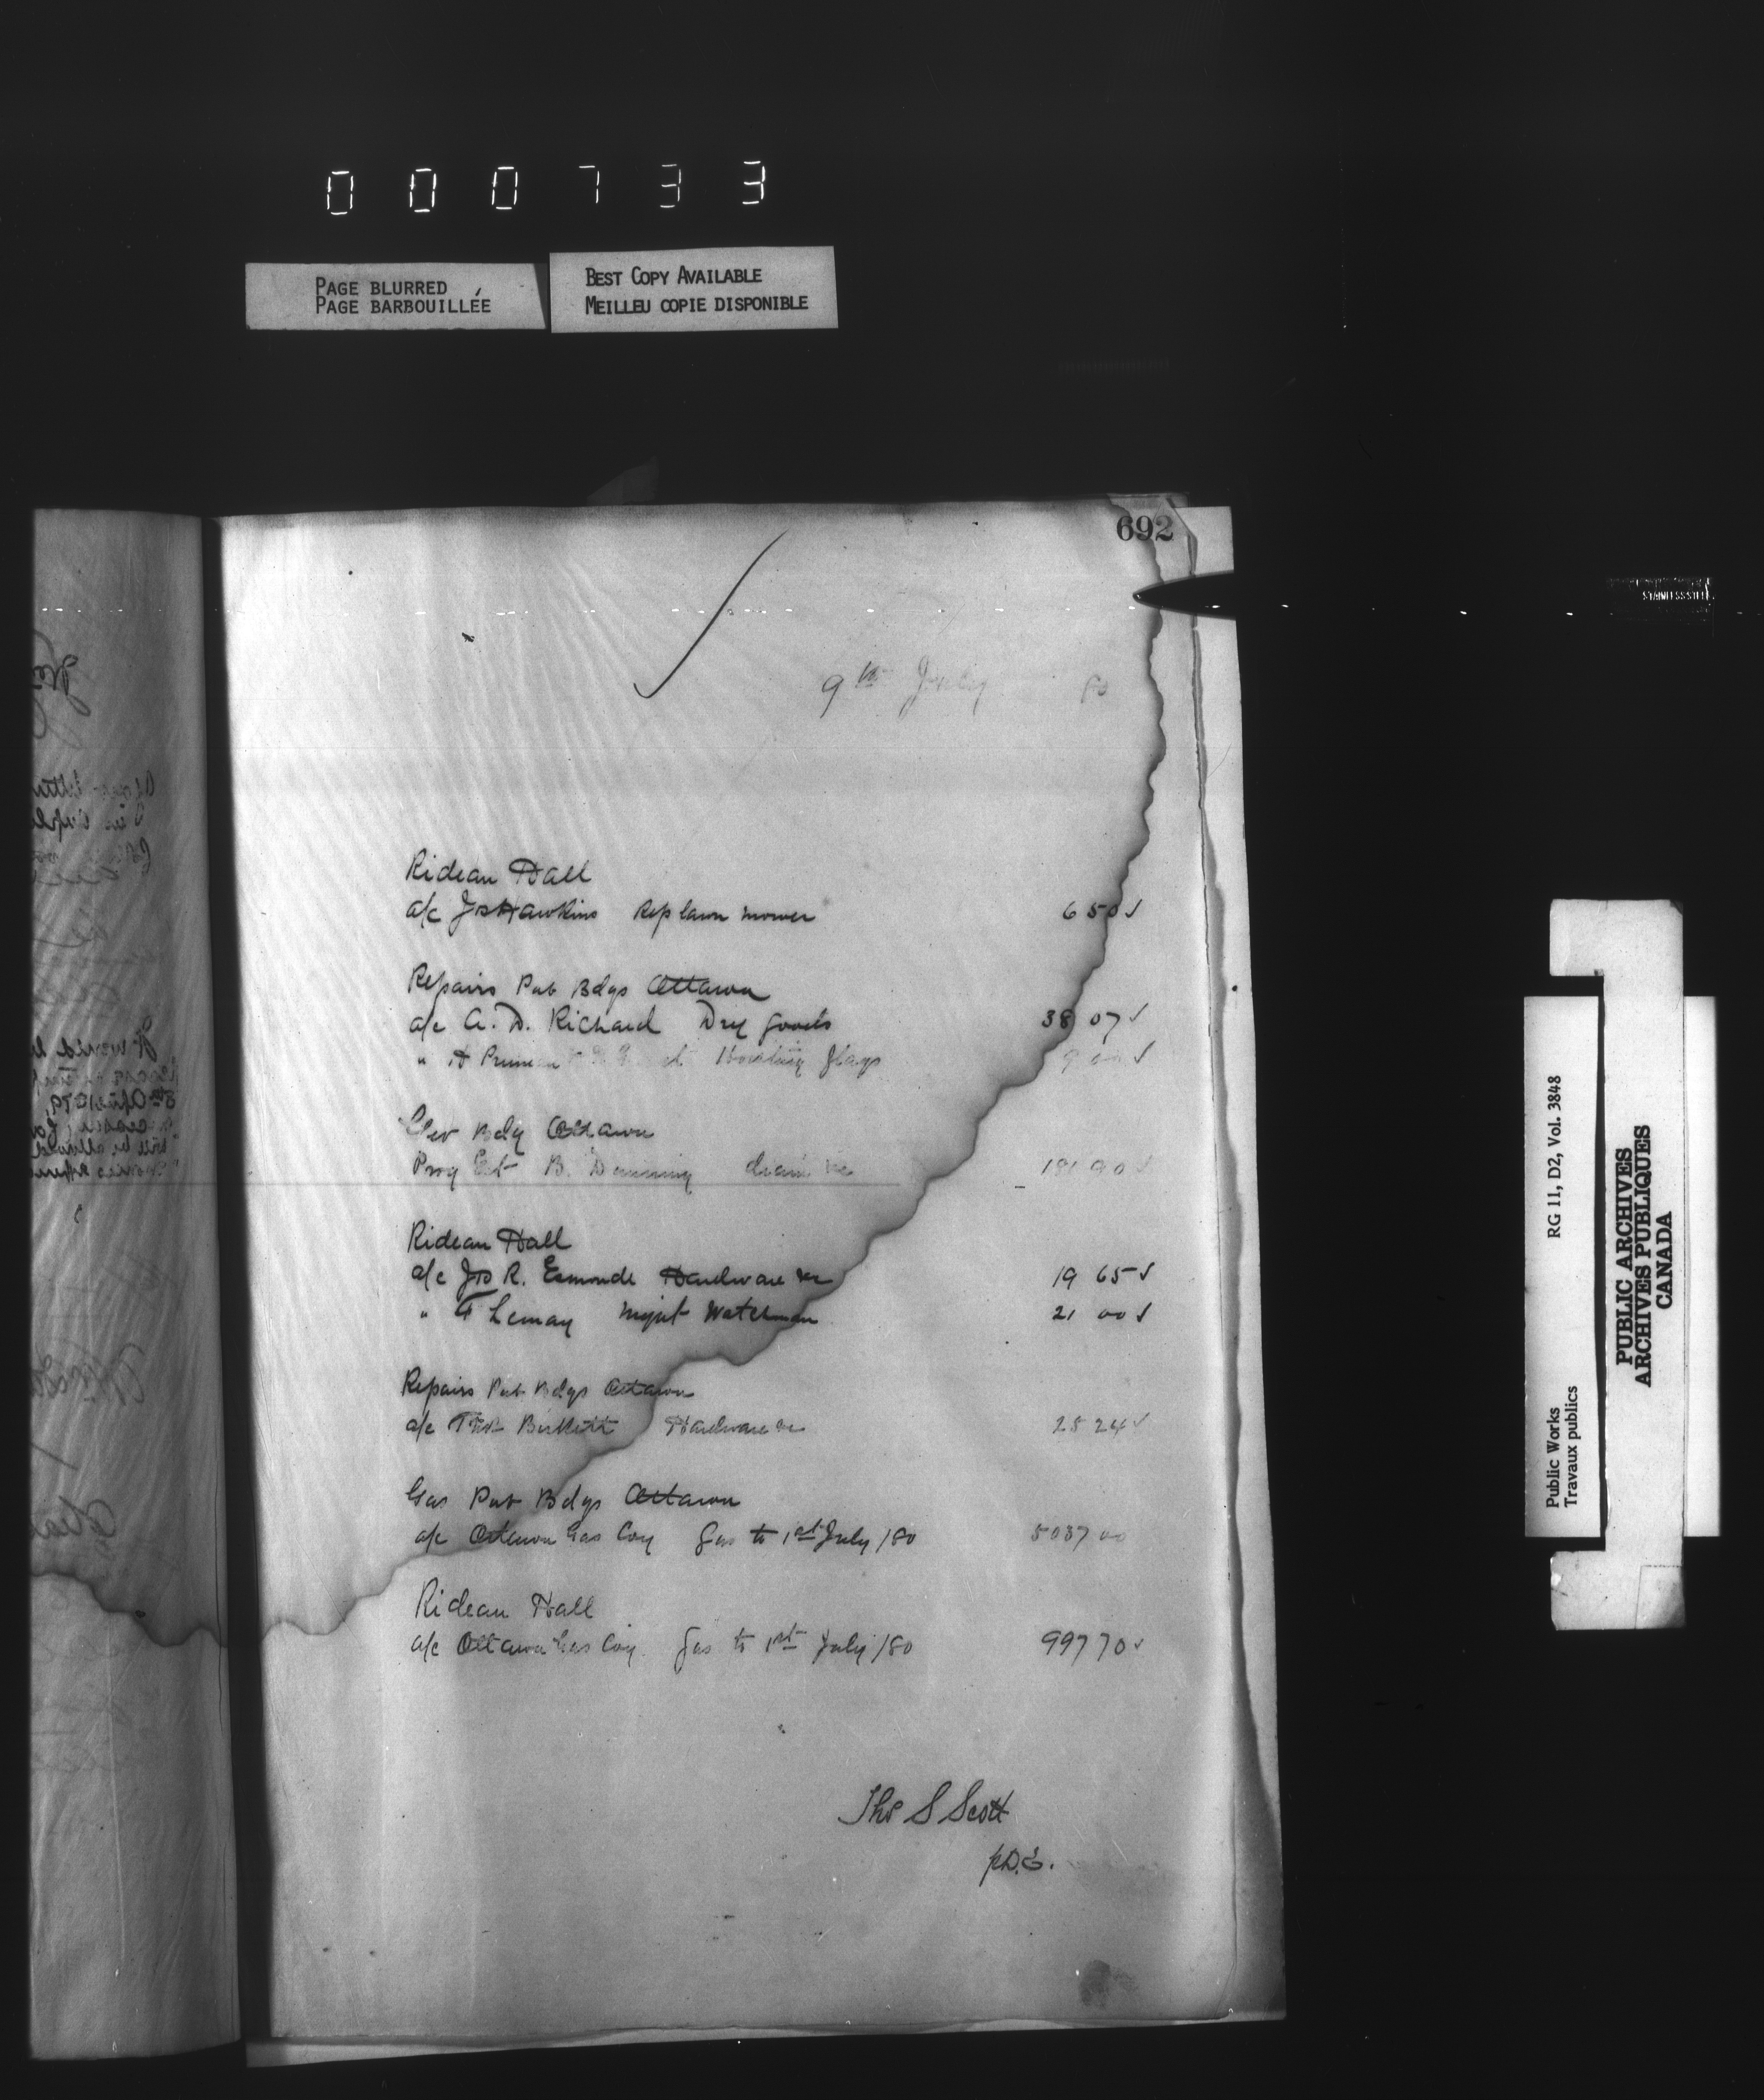 000733
PAGE BLURRED
PAGE BARBOUILLÉE
BEST COPY AVAILABLE
MEILLEU COPIE DISPONIBLE
692
9th July 80
Rideau Hall
a/c Jas Hawkins Rep lawn mower 6 50 ✓
Repairs Pub Bdgs Ottawa
a/c A. D. Richard Dry goods 38 07 ✓
" Hoisting flags 9 00 ✓
Gov Bdg Ottawa
Prog Est B. Dunning drain &c 181 90 ✓
Rideau Hall
a/c Jas R. Esmonde Hardware &c 19 65 ✓
" F Lemay Night Watchman 21 00 ✓
Repairs Pub Bdgs Ottawa
a/c Thos Birkett Hardware &c 25 24 ✓
Gas Pub Bdgs Ottawa
a/c Ottawa Gas Coy Gas to 1st July /80 5037 00
Rideau Hall
a/c Ottawa Gas Coy. Gas to 1st July /80 997 70 ✓
Thos S Scott
p D.E.
STAINLESS STEEL
Public Works
Travaux publics
RG 11, D2, Vol. 3848
PUBLIC ARCHIVES
ARCHIVES PUBLIQUES
CANADA